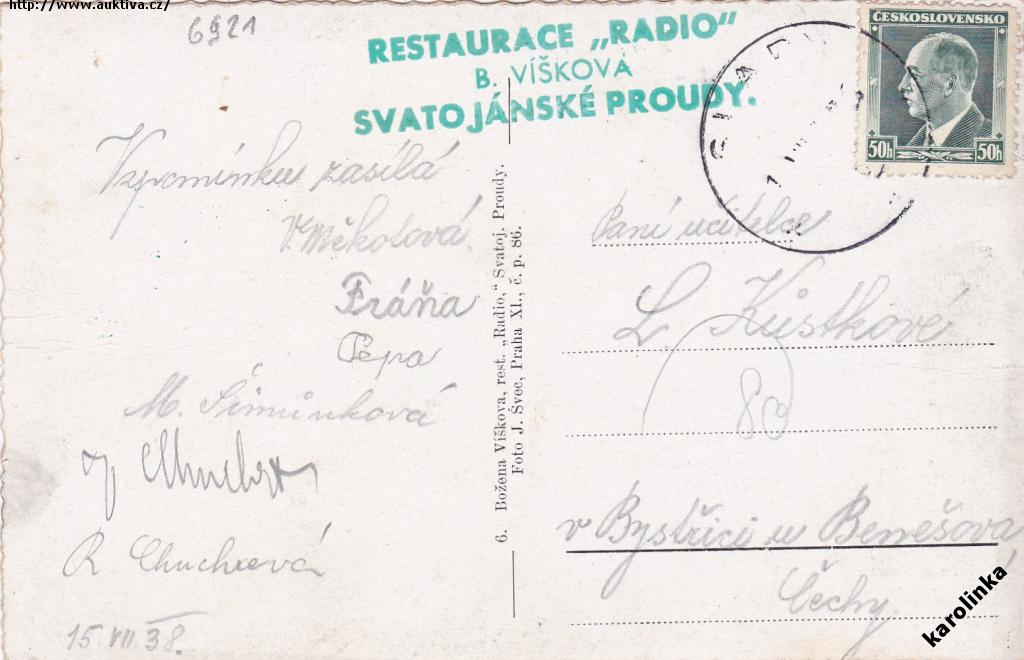 http://www.auktiva.cz/
6921
RESTAURACE „RADIO"
B. VÍŠKOVA
SVATOJÁNSKÉ PROUDY.
ČESKOSLOVENSKO
50h 50h
Vzpomínku zasílá
V. Měkotová
Fráňa
Pepa
M. Šimůnková
R Chuchová
15. VII. 38.
6. Božena Víškova, rest. „Radio," Svatoj. Proudy.
Foto J. Švec, Praha XI., č. p. 86.
Paní učitelce
L. Kústkové
80
v Bystřici u Benešova
Čechy
karolinka